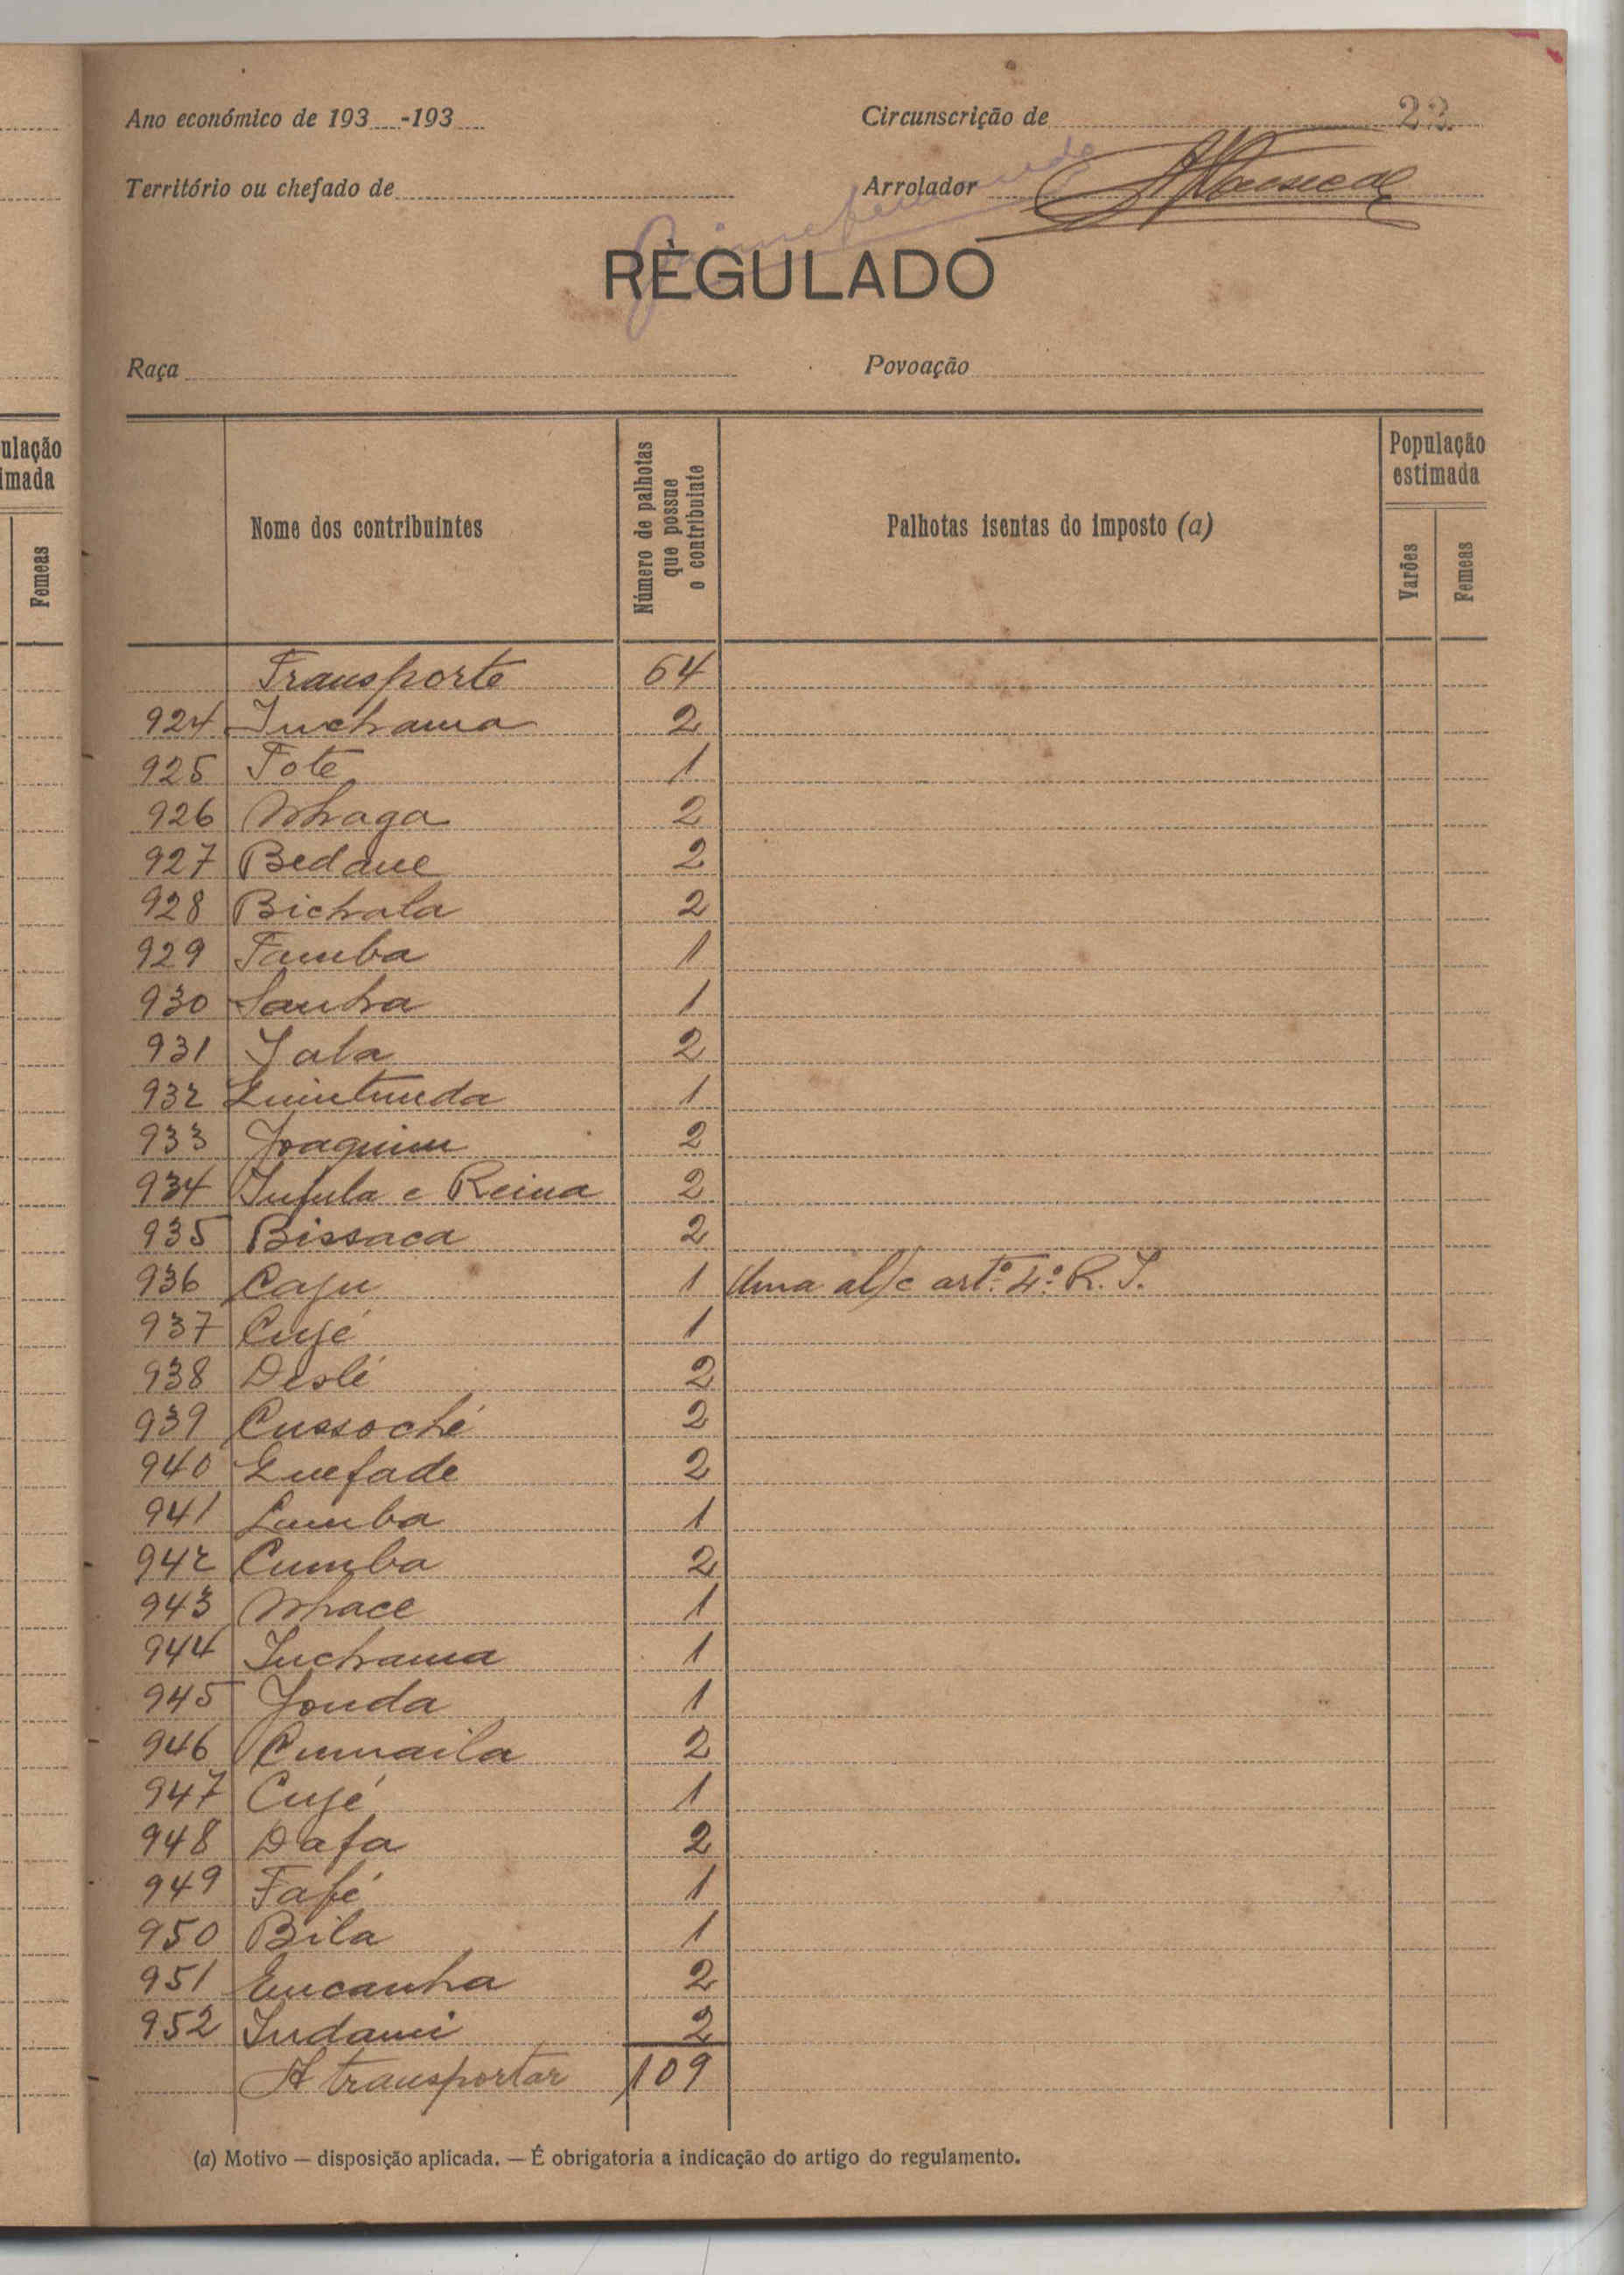 ulação
imada
Femeas
Ano económico de 193 -193
Circunscrição de 22
Território ou chefado de
Arrolador
RÈGULADO
Raça
Povoação
Nome dos contribuintes
Número de palhotas que possue o contribuinte
Palhotas isentas do imposto (a)
População estimada
Varões
Femeas
Transporte 64
924 Inchama 2
925 Tote 1
926 Nhaga 2
927 Bedane 2
928 Bichala 2
929 Tamba 1
930 Sanha 1
931 Iala 2
932 Quintunda 1
933 Joaquim 2
934 Infula e Reina 2
935 Bissaca 2
936 Caju 1 Uma al/c artº. 4º. R. I.
937 Cujé 1
938 Deslé 2
939 Cussoché 2
940 Quefade 2
941 Lamba 1
942 Cumba 2
943 Nhace 1
944 Inchama 1
945 Jonda 1
946 Cumaila 2
947 Cujé 1
948 Dafa 2
949 Fafé 1
950 Bila 1
951 Encanha 2
952 Indami 2
A transportar 109
(a) Motivo — disposição aplicada. — É obrigatoria a indicação do artigo do regulamento.